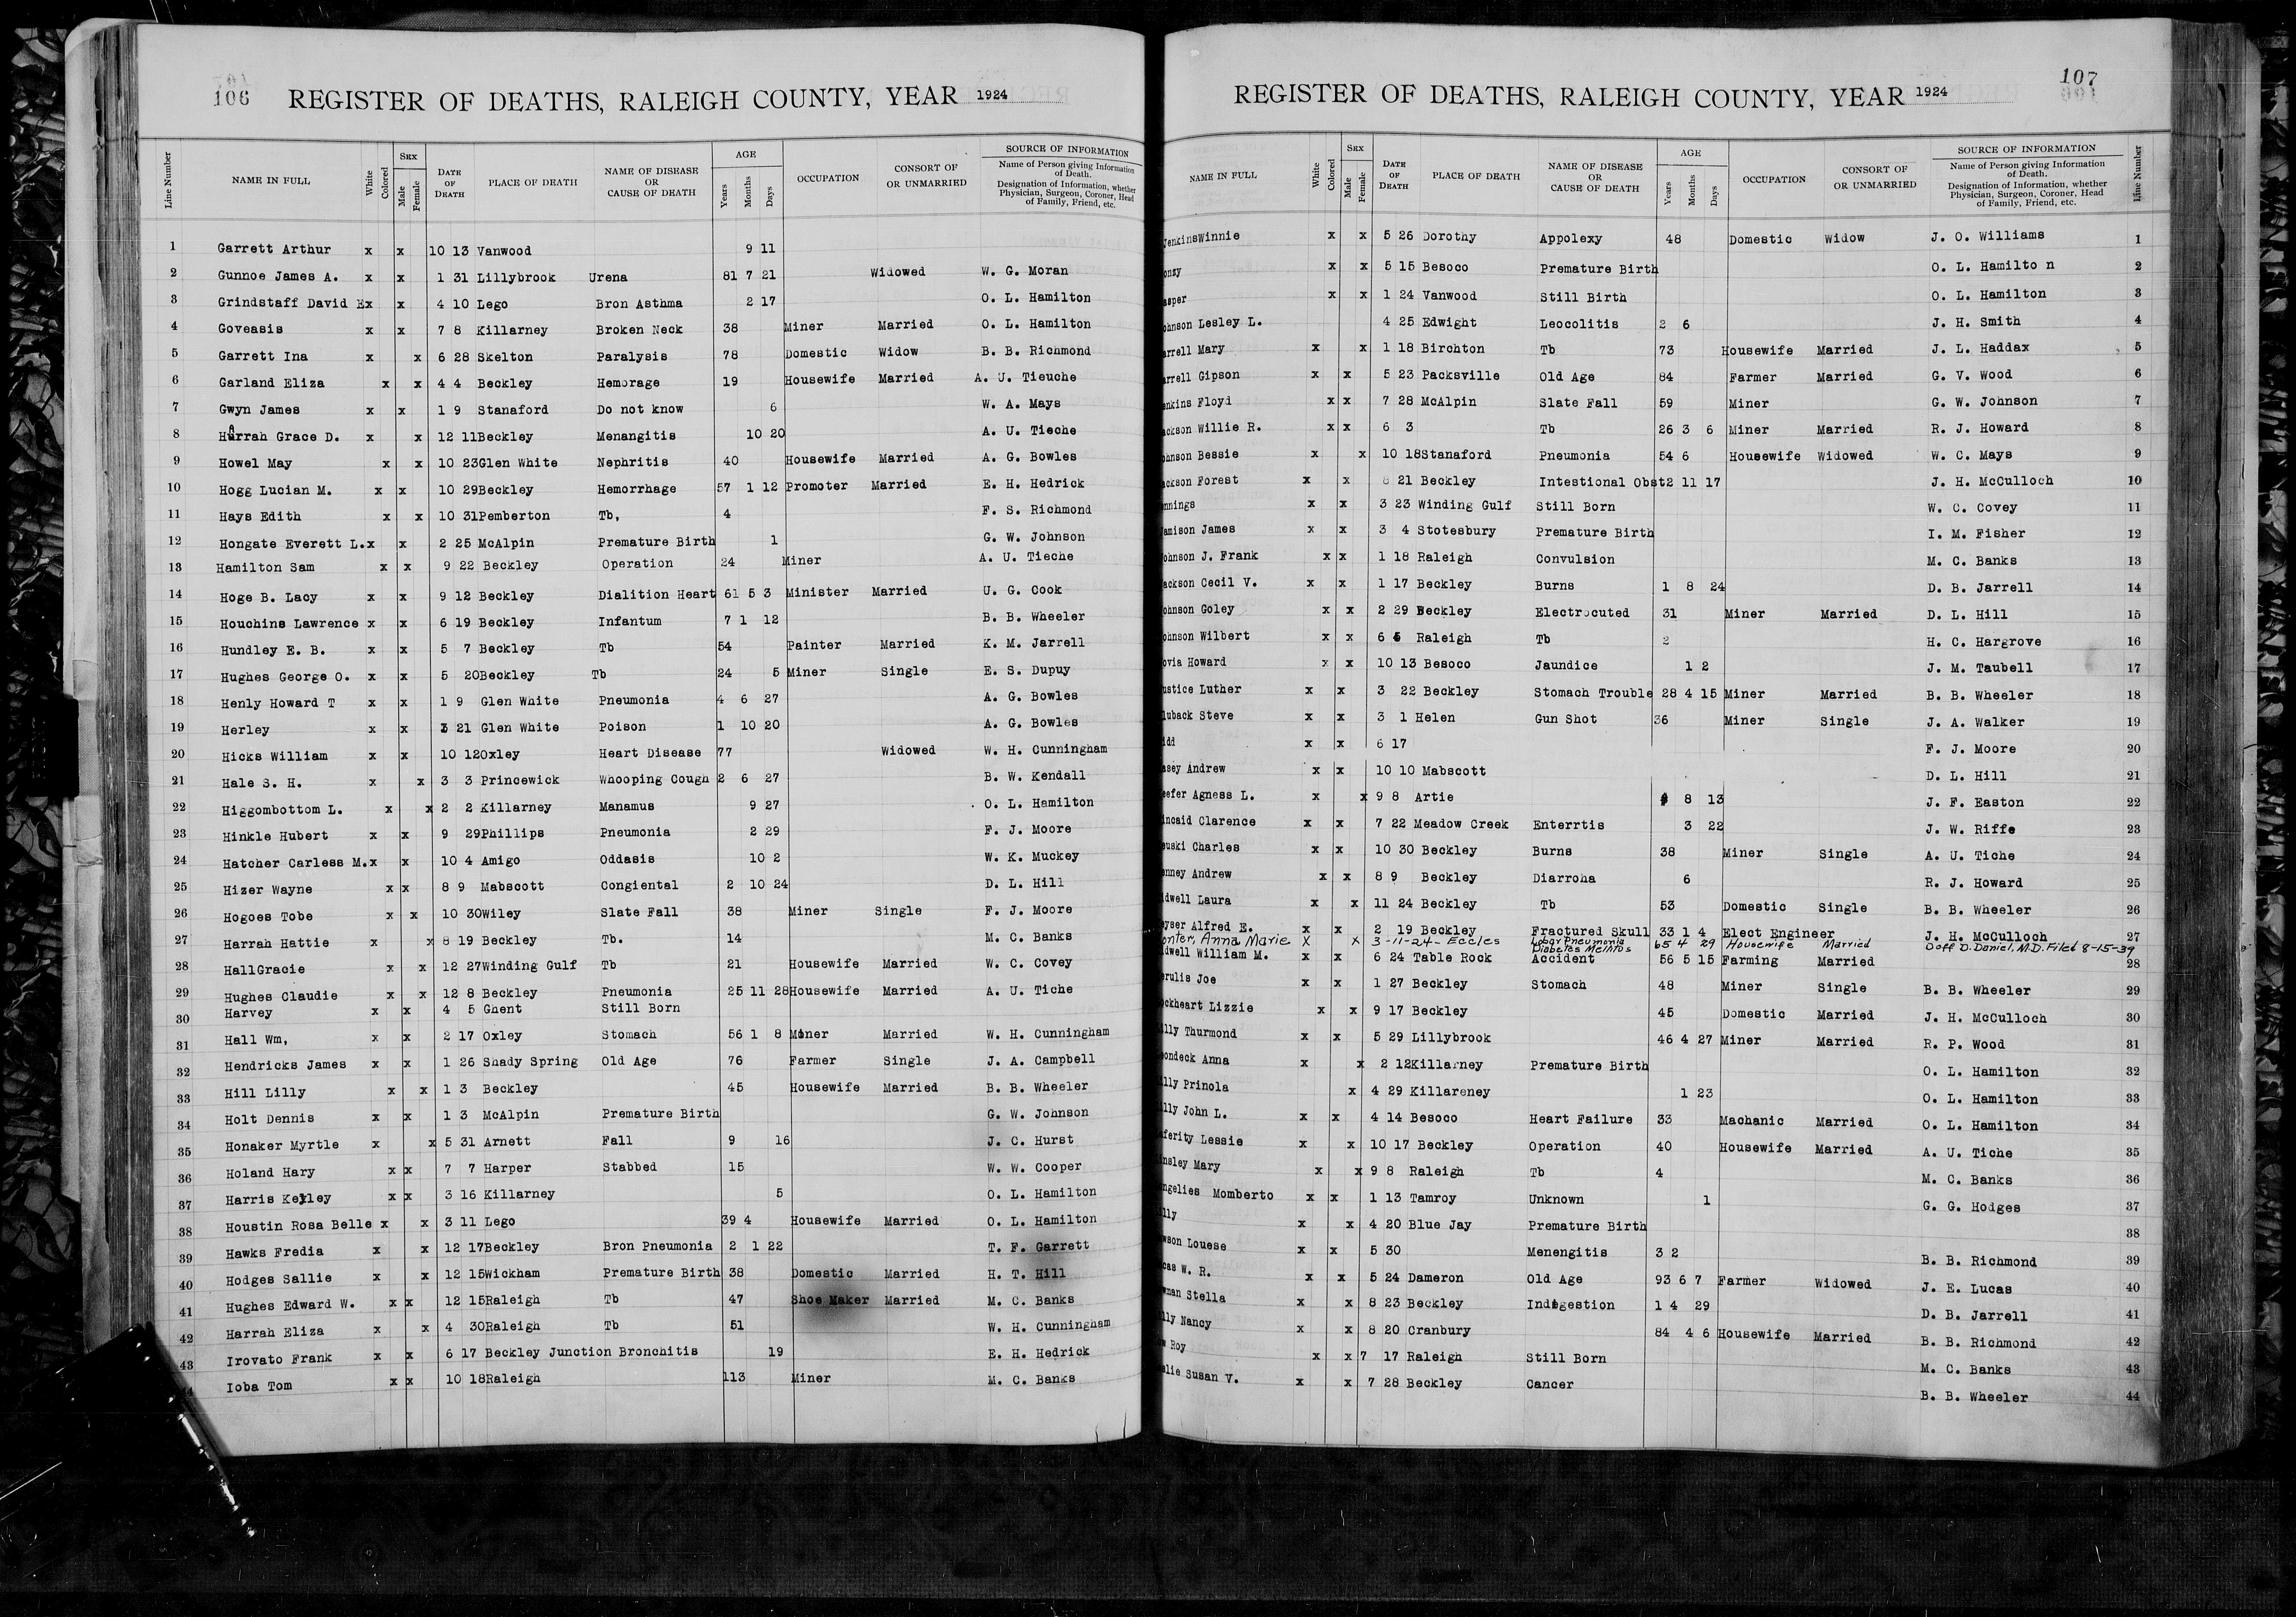 106 REGISTER OF DEATHS, RALEIGH COUNTY, YEAR 1924
Line Number NAME IN FULL White Colored SEX Male Female DATE OF DEATH PLACE OF DEATH NAME OF DISEASE OR CAUSE OF DEATH AGE Years Months Days OCCUPATION CONSORT OF OR UNMARRIED SOURCE OF INFORMATION Name of Person giving Information of Death. Designation of Information, whether Physician, Surgeon, Coroner, Head of Family, Friend, etc.
1 Garrett Arthur x x 10 13 Vanwood 9 11
2 Gunnoe James A. x x 1 31 Lillybrook Urena 81 7 21 Widowed W. G. Moran
3 Grindstaff David E x x 4 10 Lego Bron Asthma 2 17 O. L. Hamilton
4 Goveasis x x 7 8 Killarney Broken Neck 38 Miner Married O. L. Hamilton
5 Garrett Ina x x 6 28 Skelton Paralysis 78 Domestic Widow B. B. Richmond
6 Garland Eliza x x 4 4 Beckley Hemorage 19 Housewife Married A. U. Tieuche
7 Gwyn James x x 1 9 Stanaford Do not know 6 W. A. Mays
8 Harrah Grace D. x x 12 11 Beckley Menangitis 10 20 A. U. Tieche
9 Howel May x x 10 23 Glen White Nephritis 40 Housewife Married A. G. Bowles
10 Hogg Lucian M. x x 10 29 Beckley Hemorrhage 57 1 12 Promoter Married E. H. Hedrick
11 Hays Edith x x 10 31 Pemberton Tb, 4 F. S. Richmond
12 Hongate Everett L. x x 2 25 McAlpin Premature Birth 1 G. W. Johnson
13 Hamilton Sam x x 9 22 Beckley Operation 24 Miner A. U. Tieche
14 Hoge B. Lacy x x 9 12 Beckley Dialition Heart 61 5 3 Minister Married U. G. Cook
15 Houchins Lawrence x x 6 19 Beckley Infantum 7 1 12 B. B. Wheeler
16 Hundley E. B. x x 5 7 Beckley Tb 54 Painter Married K. M. Jarrell
17 Hughes George O. x x 5 20 Beckley Tb 24 5 Miner Single E. S. Dupuy
18 Henly Howard T x x 1 9 Glen White Pneumonia 4 6 27 A. G. Bowles
19 Herley x x 3 21 Glen White Poison 1 10 20 A. G. Bowles
20 Hicks William x x 10 12 Oxley Heart Disease 77 Widowed W. H. Cunningham
21 Hale S. H. x x 3 3 Princewick Whooping Cough 2 6 27 B. W. Kendall
22 Higgombottom L. x x 2 2 Killarney Manamus 9 27 O. L. Hamilton
23 Hinkle Hubert x x 9 29 Phillips Pneumonia 2 29 F. J. Moore
24 Hatcher Carless M. x x 10 4 Amigo Oddasis 10 2 W. K. Muckey
25 Hizer Wayne x x 8 9 Mabscott Congiental 2 10 24 D. L. Hill
26 Hogoes Tobe x x 10 30 Wiley Slate Fall 38 Miner Single F. J. Moore
27 Harrah Hattie x x 8 19 Beckley Tb. 14 M. C. Banks
28 HallGracie x x 12 27 Winding Gulf Tb 21 Housewife Married W. C. Covey
29 Hughes Claudie x x 12 8 Beckley Pneumonia 25 11 28 Housewife Married A. U. Tiche
30 Harvey x x 4 5 Ghent Still Born
31 Hall Wm, x x 2 17 Oxley Stomach 56 1 8 Miner Married W. H. Cunningham
32 Hendricks James x x 1 26 Shady Spring Old Age 76 Farmer Single J. A. Campbell
33 Hill Lilly x x 1 3 Beckley 45 Housewife Married B. B. Wheeler
34 Holt Dennis x x 1 3 McAlpin Premature Birth G. W. Johnson
35 Honaker Myrtle x x 5 31 Arnett Fall 9 16 J. C. Hurst
36 Holand Hary x x 7 7 Harper Stabbed 15 W. W. Cooper
37 Harris Kelley x x 3 16 Killarney 5 O. L. Hamilton
38 Houstin Rosa Belle x x 3 11 Lego 39 4 Housewife Married O. L. Hamilton
39 Hawks Fredia x x 12 17 Beckley Bron Pneumonia 2 1 22 T. F. Garrett
40 Hodges Sallie x x 12 15 Wickham Premature Birth 38 Domestic Married H. T. Hill
41 Hughes Edward W. x x 12 15 Raleigh Tb 47 Shoe Maker Married M. C. Banks
42 Harrah Eliza x x 4 30 Raleigh Tb 51 W. H. Cunningham
43 Irovato Frank x x 6 17 Beckley Junction Bronchitis 19 E. H. Hedrick
Ioba Tom x x 10 18 Raleigh 113 Miner M. C. Banks
107
REGISTER OF DEATHS, RALEIGH COUNTY, YEAR 1924
NAME IN FULL White Colored SEX Male Female DATE OF DEATH PLACE OF DEATH NAME OF DISEASE OR CAUSE OF DEATH AGE Years Months Days OCCUPATION CONSORT OF OR UNMARRIED SOURCE OF INFORMATION Name of Person giving Information of Death. Designation of Information, whether Physician, Surgeon, Coroner, Head of Family, Friend, etc. Line Number
JenkinsWinnie x x 5 26 Dorothy Appolexy 48 Domestic Widow J. O. Williams 1
x x 5 15 Besoco Premature Birth O. L. Hamilto n 2
asper x x 1 24 Vanwood Still Birth O. L. Hamilton 3
ohnson Lesley L. 4 25 Edwight Leocolitis 2 6 J. H. Smith 4
arrell Mary x x 1 18 Birchton Tb 73 Housewife Married J. L. Haddax 5
arrell Gipson x x 5 23 Packsville Old Age 84 Farmer Married G. V. Wood 6
enkins Floyd x x 7 28 McAlpin Slate Fall 59 Miner G. W. Johnson 7
ackson Willie R. x x 6 3 Tb 26 3 6 Miner Married R. J. Howard 8
ohnson Bessie x x 10 18 Stanaford Pneumonia 54 6 Housewife Widowed W. C. Mays 9
ackson Forest x x 8 21 Beckley Intestional Obst 2 11 17 J. H. McCulloch 10
nnings x x 3 23 Winding Gulf Still Born W. C. Covey 11
Jamison James x x 3 4 Stotesbury Premature Birth I. M. Fisher 12
ohnson J. Frank x x 1 18 Raleigh Convulsion M. C. Banks 13
ackson Cecil V. x x 1 17 Beckley Burns 1 8 24 D. B. Jarrell 14
ohnson Goley x x 2 29 Beckley Electrocuted 31 Miner Married D. L. Hill 15
ohnson Wilbert x x 6 Raleigh Tb 2 H. C. Hargrove 16
ovia Howard x x 10 13 Besoco Jaundice 1 2 J. M. Taubell 17
ustice Luther x x 3 22 Beckley Stomach Trouble 28 4 15 Miner Married B. B. Wheeler 18
luback Steve x x 3 1 Helen Gun Shot 36 Miner Single J. A. Walker 19
idd x x 6 17 F. J. Moore 20
asey Andrew x x 10 10 Mabscott D. L. Hill 21
eefer Agness L. x x 9 8 Artie 8 13 J. F. Easton 22
incaid Clarence x x 7 22 Meadow Creek Enterrtis 3 22 J. W. Riffe 23
euski Charles x x 10 30 Beckley Burns 38 Miner Single A. U. Tiche 24
enney Andrew x x 8 9 Beckley Diarroha 6 R. J. Howard 25
idwell Laura x x 11 24 Beckley Tb 53 Domestic Single B. B. Wheeler 26
eyser Alfred E. x x 2 19 Beckley Fractured Skull 33 1 4 Elect Engineer J. H. McCulloch 27
onter, Anna Marie X X 3-11-24- Eccles Lobar Pneumonia Diabetes 65 4 29 Housewife Married D. Daniel, M.D. Filed 8-15-39
idwell William M. x x 6 24 Table Rock Accident 56 5 15 Farming Married 28
erulis Joe x x 1 27 Beckley Stomach 48 Miner Single B. B. Wheeler 29
ockheart Lizzie x x 9 17 Beckley 45 Domestic Married J. H. McCulloch 30
illy Thurmond x x 5 29 Lillybrook 46 4 27 Miner Married R. P. Wood 31
eondeck Anna x x 2 12 Killarney Premature Birth O. L. Hamilton 32
illy Prinola x 4 29 Killareney 1 23 O. L. Hamilton 33
illy John L. x x 4 14 Besoco Heart Failure 33 Machanic Married O. L. Hamilton 34
aferity Lessie x x 10 17 Beckley Operation 40 Housewife Married A. U. Tiche 35
insley Mary x x 9 8 Raleigh Tb 4 M. C. Banks 36
ngelies Momberto x x 1 13 Tamroy Unknown 1 G. G. Hodges 37
illy x x 4 20 Blue Jay Premature Birth 38
wson Louese x x 5 30 Menengitis 3 2 B. B. Richmond 39
cas W. R. x x 5 24 Dameron Old Age 93 6 7 Farmer Widowed J. E. Lucas 40
wman Stella x x 8 23 Beckley Indigestion 1 4 29 D. B. Jarrell 41
illy Nancy x x 8 20 Cranbury 84 4 6 Housewife Married B. B. Richmond 42
w Roy x x 7 17 Raleigh Still Born M. C. Banks 43
slie Susan V. x x 7 28 Beckley Cancer B. B. Wheeler 44